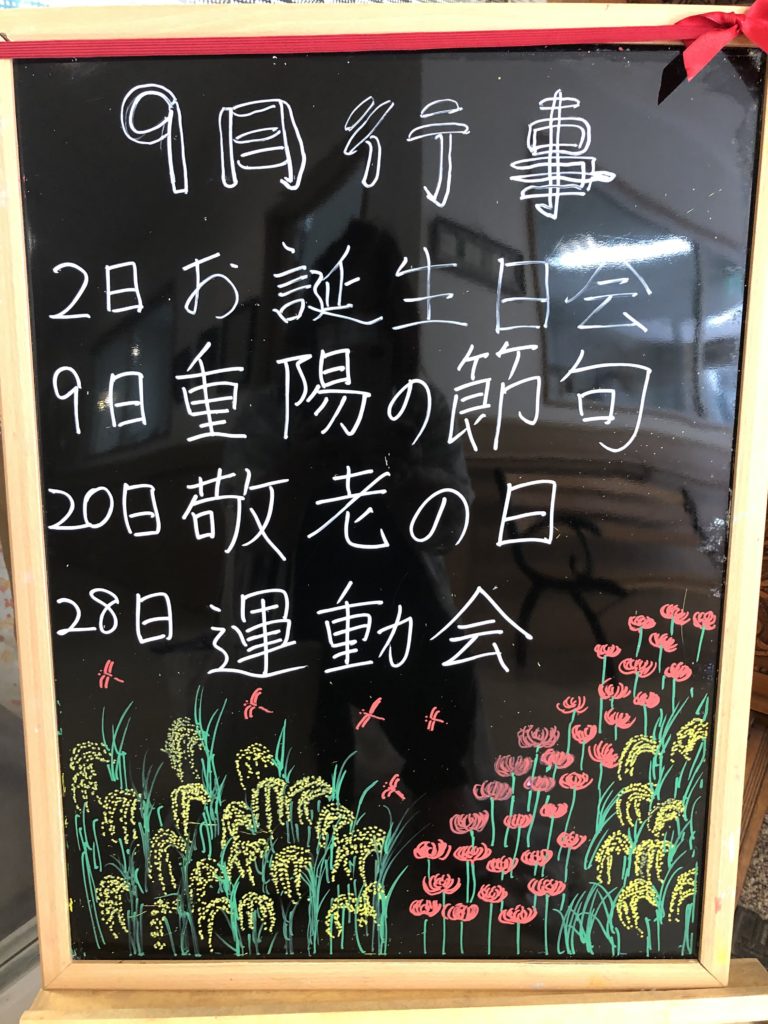 9月行事
2日お誕生日会
9日重陽の節句
20日敬老の日
28日運動会